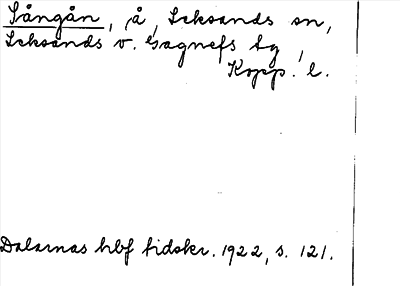 Sångån, å, Leksands sn,
Leksands o. Gagnefs tg,
Kopp. l.
Dalarnas hbf tidskr. 1922, s. 121.